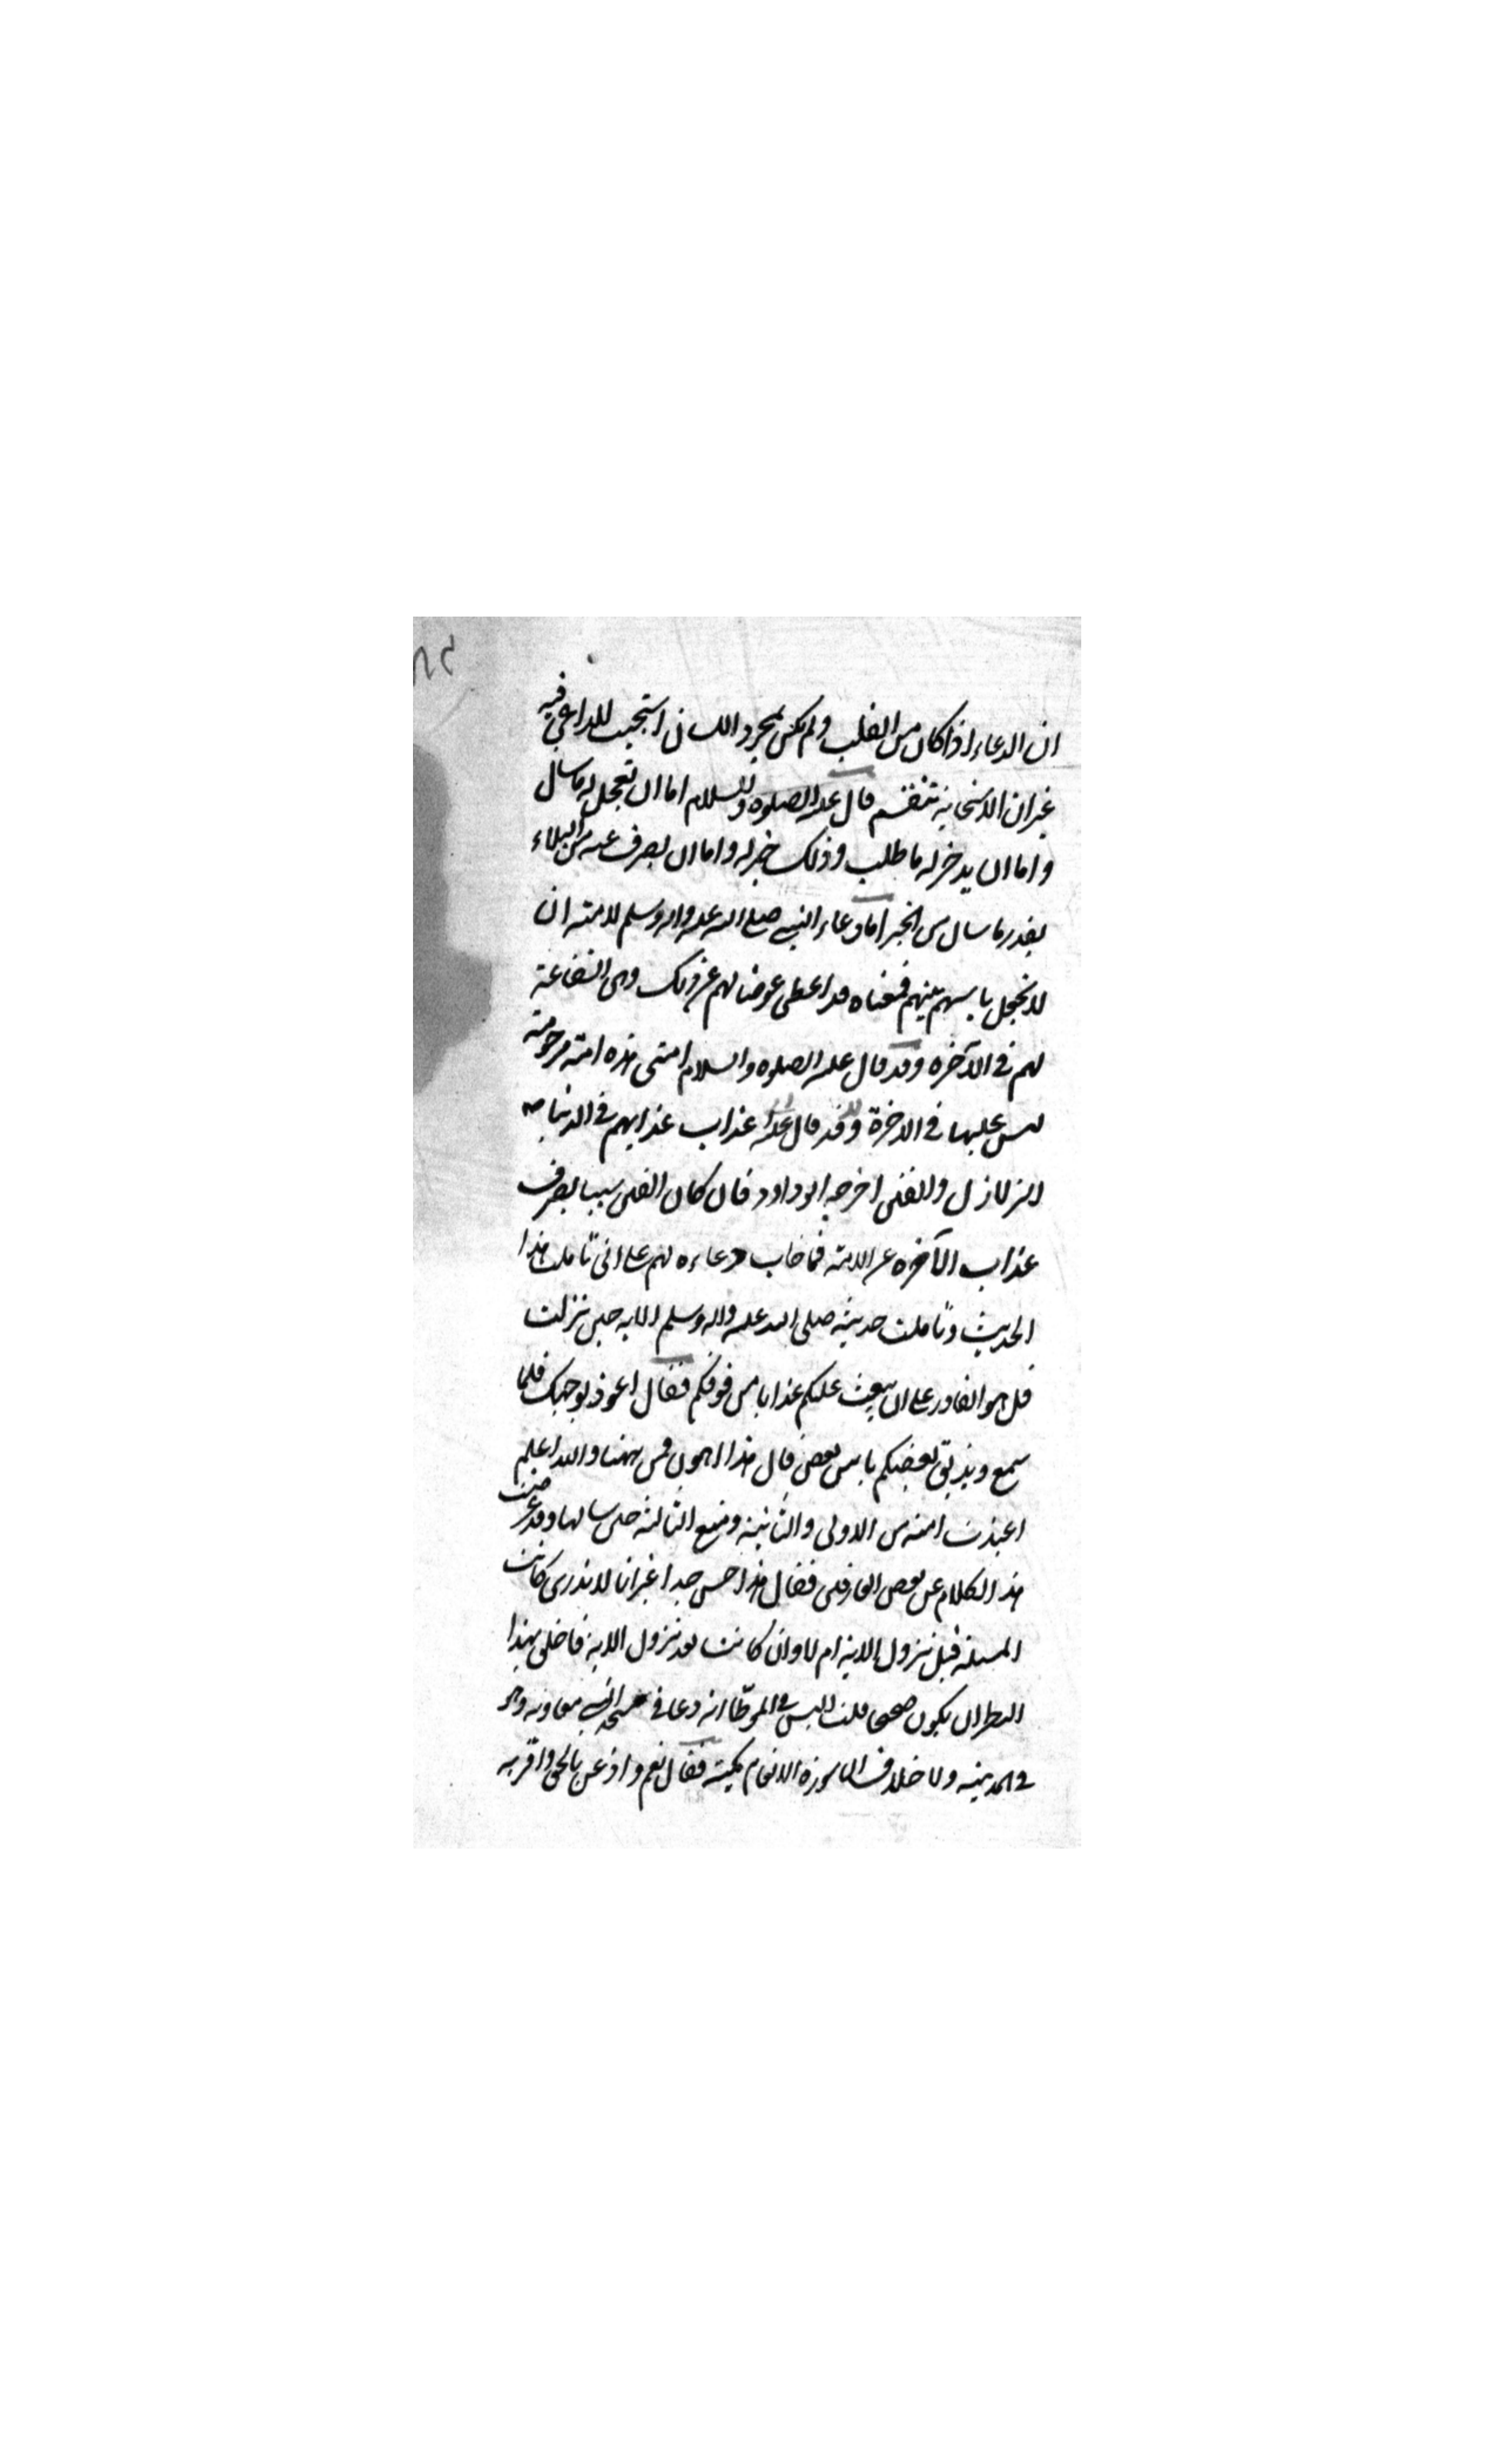 ان الدعاء اذا كان من القلب ولم يكن بمجرد اللسان استجيب للداعي فيه
غير ان الاستجابة تنقسم قال عليه الصلوة والسلام اما ان تعجل له ما سال
واما ان يدخر له ما طلب وذلك خير له واما ان يصرف عنه من البلاء
بقدر ما سال من الخير اما دعاء النبي صلى الله عليه واله وسلم لامته ان
لا تجعل باسهم بينهم فمعناه قد اعطى عوضا لهم عن ذلك وهي الشفاعة
لهم في الآخره وقد قال عليه الصلوه والسلام امتى هذه امة مرحومة
ليس عليها في الاخرة وقد قال عليه عذاب عذابهم في الدنيا
الزلازل والفتن اخرجه ابو داود فان كان الفتن سببا لصرف
عذاب الآخره عن الامة فما خاب دعاءه لهم على انى تاملت هذا
الحديث وتاملت حديثه صلى الله عليه واله وسلم الايه حين نزلت
قل هو القادر على ان يبعث عليكم عذابا من فوقكم فقال اعوذ بوجهك فلما
سمع ويذيق بعضكم باس بعض قال هذا اهون فمن ههنا والله اعلم
اعيذت امته من الاولى والثانية ومنع الثالثة حين سالها وقد عرضت
هذا الكلام على بعض العارفين فقال هذا حسن جدا غير انا لا ندرى كانت
المسئلة قبل نزول الاية ام لا وان كانت بعد نزول الاية فاخلق بهذا
النظر ان يكون صحيحا قلت اليس في الموطا انه دعا في مسجد بني معاويه وهو
في المدينه ولا خلاف ان سورة الانعام مكية فقال نعم واذعن بالحق واقر به